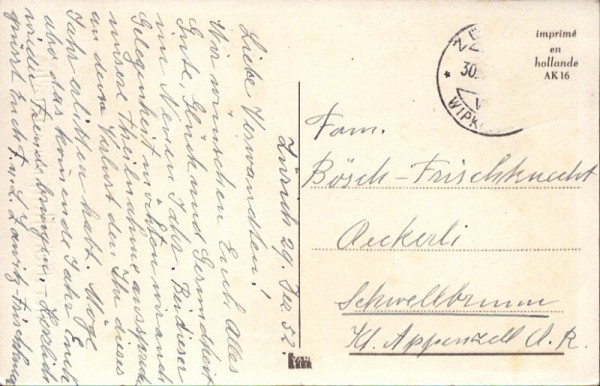 Zürich 29. Dez. 52.
Liebe Verwandten!
Wir wünschen Euch Alles
Gute, Glück und Gesundheit
im Neuen Jahr. Bei dieser
Gelegenheit möchten wir auch
unsere Theilnahme aussprech.
an dem Verlust den Ihr dieses
Jahr erlitten habt. Möge
aber das kommende Jahr Euch
wieder Freude bringen. Herzlich
grüsst Euch
imprimé
en
hollande
AK 16
30.
WIPK
Fam.
Bösch-Frischknecht
Aeckerli
Schwellbrunn
Kt. Appenzell A. R.